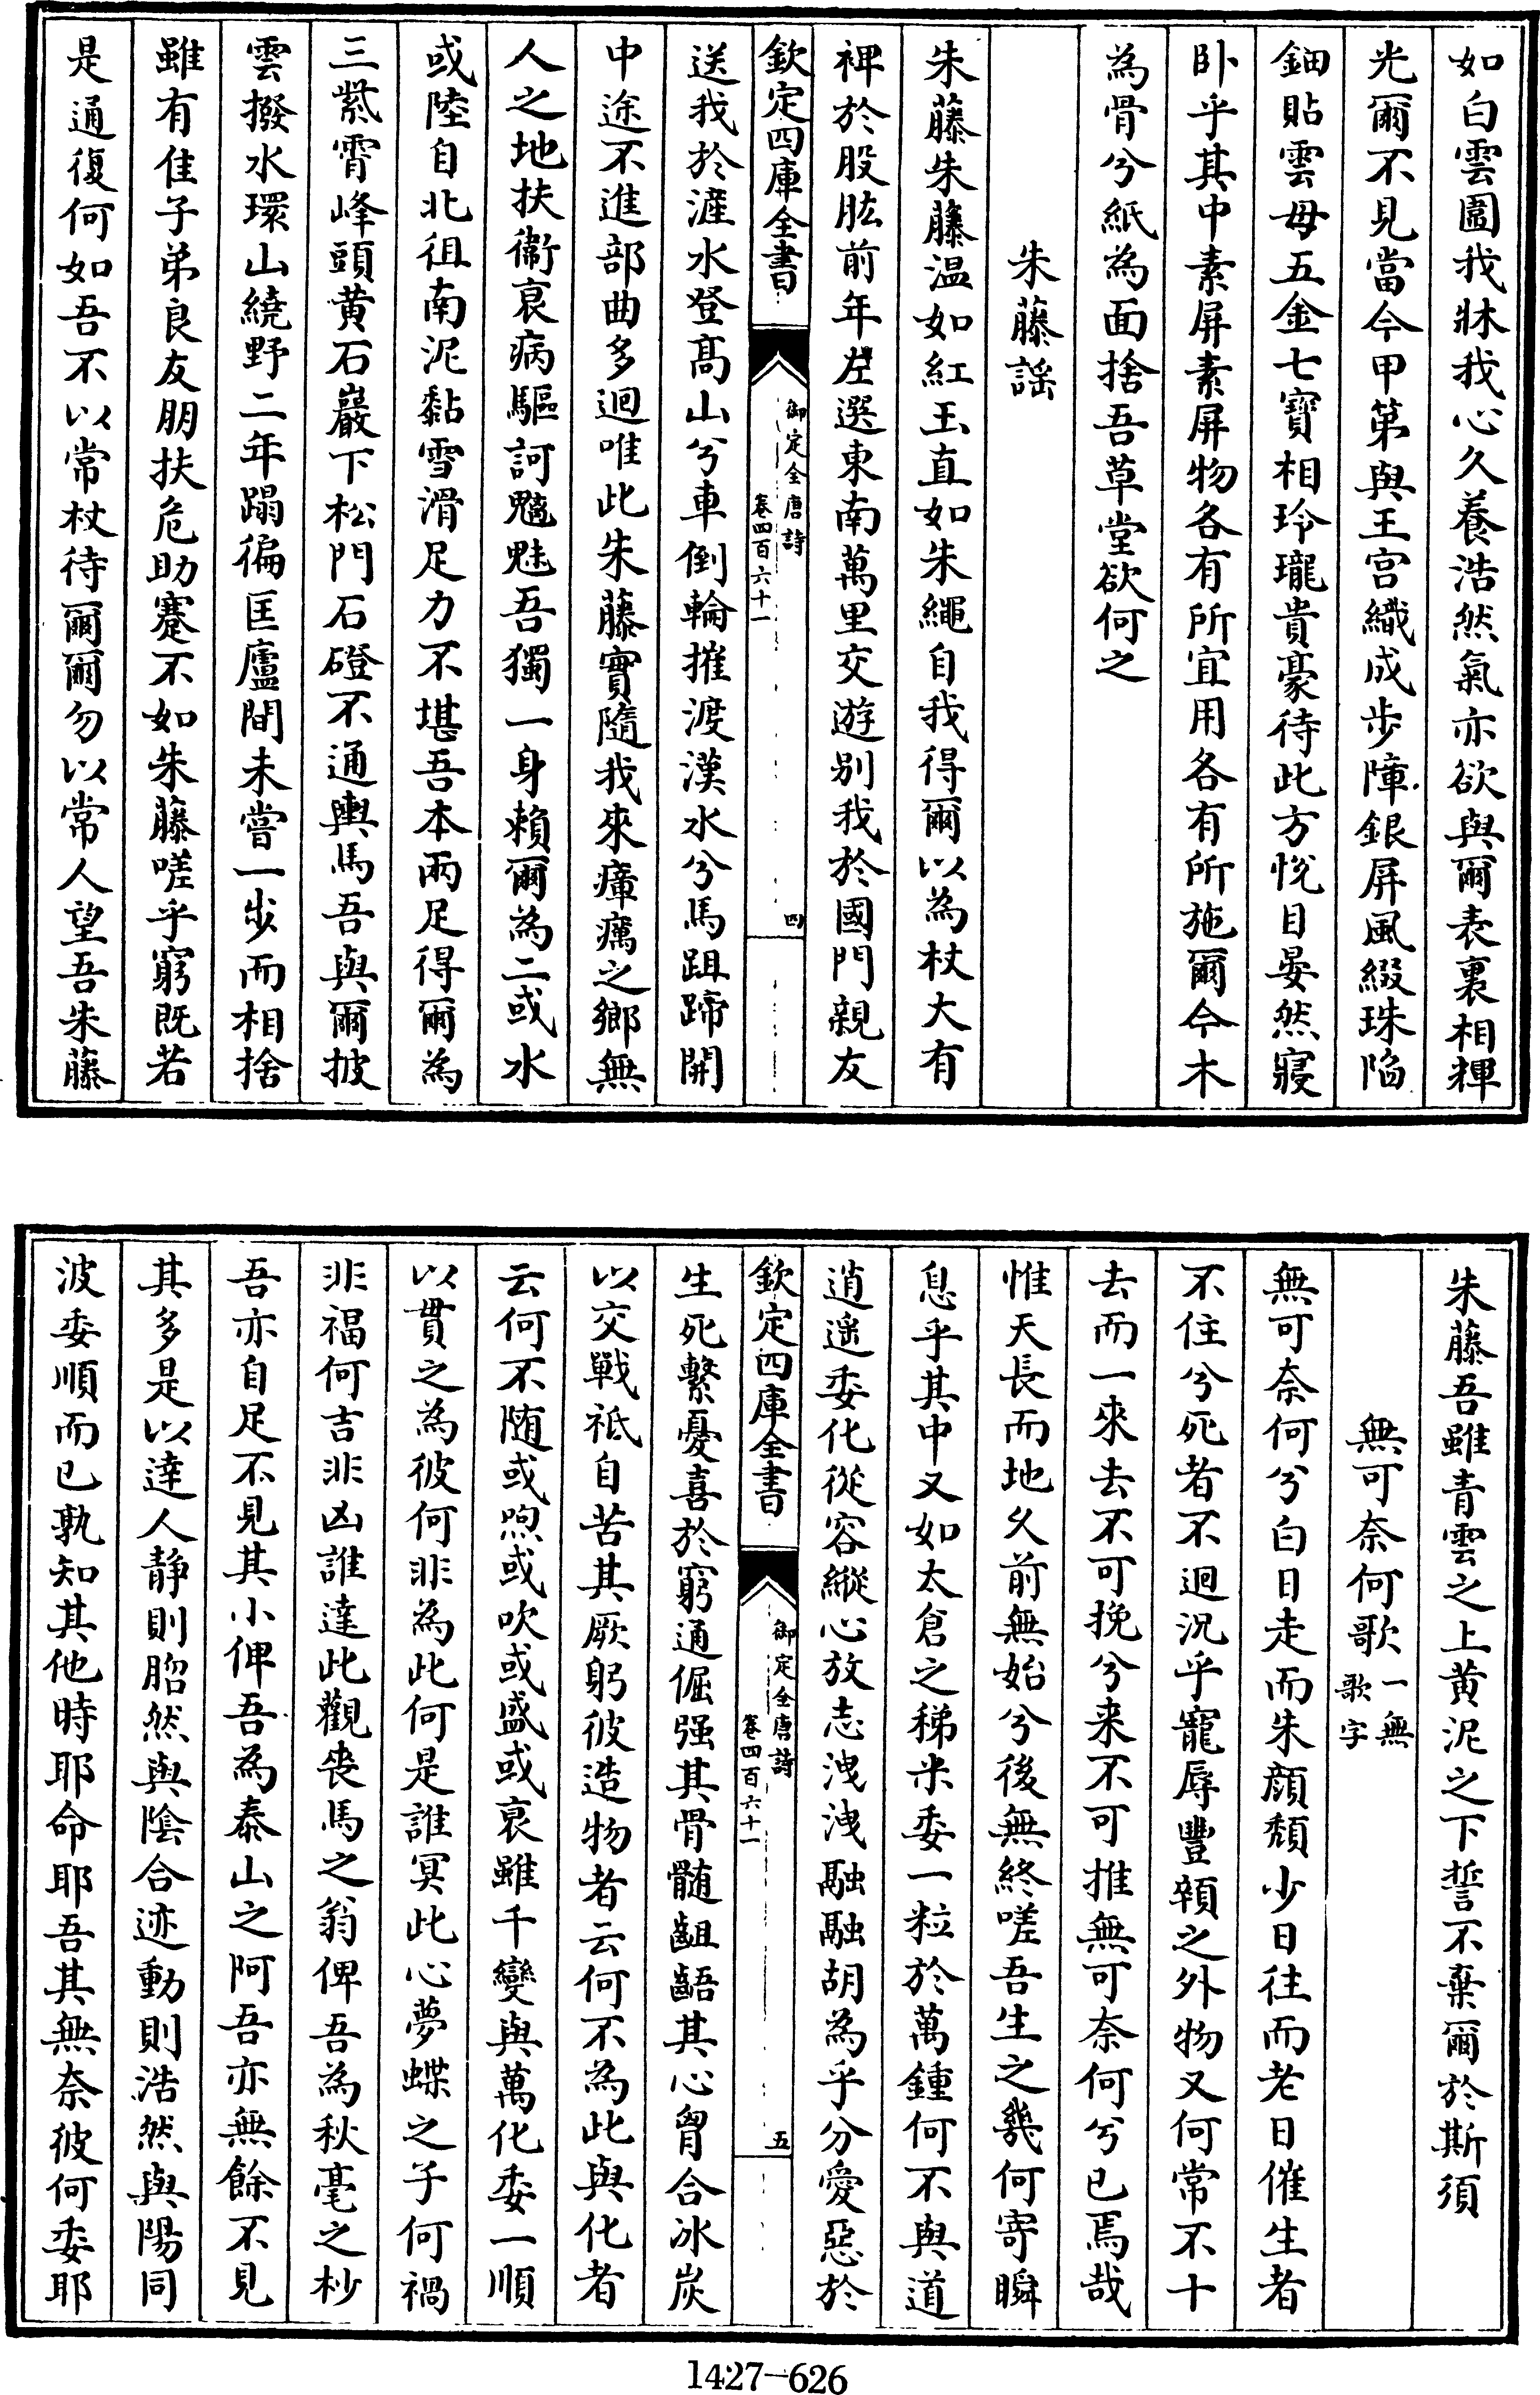 如白雲圖我牀我心久養浩然氣亦欲與爾表裏相輝
光爾不見當今甲第與王宫織成步障銀屏風綴珠陷
鈿貼雲母五金七寶相玲瓏貴豪待此方悦目晏然寢
卧乎其中素屏素屏物各有所宜用各有所施爾今木
為骨兮紙為面捨吾草堂欲何之
朱藤謡
朱藤朱藤温如紅玉直如朱繩自我得爾以為杖大有
裨於股肱前年左選東南萬里交遊别我於國門親友
欽定四庫全書
御定全唐詩
卷四百六十一
四
送我於滻水登髙山兮車倒輪摧渡漢水兮馬跙蹄開
中途不進部曲多迴唯此朱藤實隨我來瘴癘之鄉無
人之地扶衞衰病驅訶魑魅吾獨一身賴爾為二或水
或陸自北徂南泥黏雪滑足力不堪吾本兩足得爾為
三紫霄峰頭黄石巖下松門石磴不通輿馬吾與爾披
雲撥水環山繞野二年蹋徧匡廬間未嘗一步而相捨
雖有隹子弟良友朋扶危助蹇不如朱藤嗟乎窮既若
是通復何如吾不以常杖待爾爾勿以常人望吾朱藤
朱藤吾雖青雲之上黄泥之下誓不棄爾於斯須
無可奈何歌一無歌字
無可奈何兮白日走而朱顔頽少日往而老日催生者
不住兮死者不迴況乎寵辱豐顇之外物又何常不十
去而一來去不可挽兮来不可推無可奈何兮已焉哉
惟天長而地久前無始兮後無終嗟吾生之幾何寄瞬
息乎其中又如太倉之稊米委一粒於萬鍾何不與道
逍遥委化從容縱心放志洩洩融融胡為乎分愛惡於
欽定四庫全書
御定全唐詩
卷四百六十一
五
生死繫憂喜於窮通倔强其骨髄齟齬其心胷合冰炭
以交戰祗自苦其厥躬彼造物者云何不為此與化者
云何不随或喣或吹或盛或衰雖千變與萬化委一順
以貫之為彼何非為此何是誰冥此心夢蝶之子何禍
非福何吉非凶誰達此觀喪馬之翁俾吾為秋毫之杪
吾亦自足不見其小俾吾為泰山之阿吾亦無餘不見
其多是以達人静則脗然與陰合迹動則浩然與陽同
波委順而已孰知其他時耶命耶吾其無奈彼何委耶
1427-626